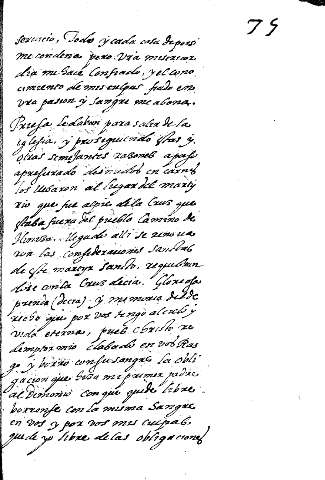 75
servicio, Todo y cada cosa de por si
me condena pero Vra misericor
dia me hace confiado, y el cono
cimiento de mis culpas fiado en
vra pasion y sangre me abona.
Priesa le daban para salir de la
iglesia, y prosiguiendo estas y
otras semejantes razones a paso
apresurado desnudos en carnes
los llebaron al lugar del marty
rio que fue al pie de la Cruz que
estaba fuera del pueblo camino de
llegado alli se renova
ron las consideraciones santas
de este martyr santo, requebran
dose con la Cruz decia. Gloriosa
prenda (decia) y memoria de el de
recho que por vos tengo al cielo y
vida eterna, pues christo re
demptor mio clabado en vos Ras
go y borro con su sangre la obli
gacion que hizo mi primer padre
al Demonio con que quede libre
borrense con la misma sangre
en vos y por vos mis culpas,
quede yo libre de las obligaciones